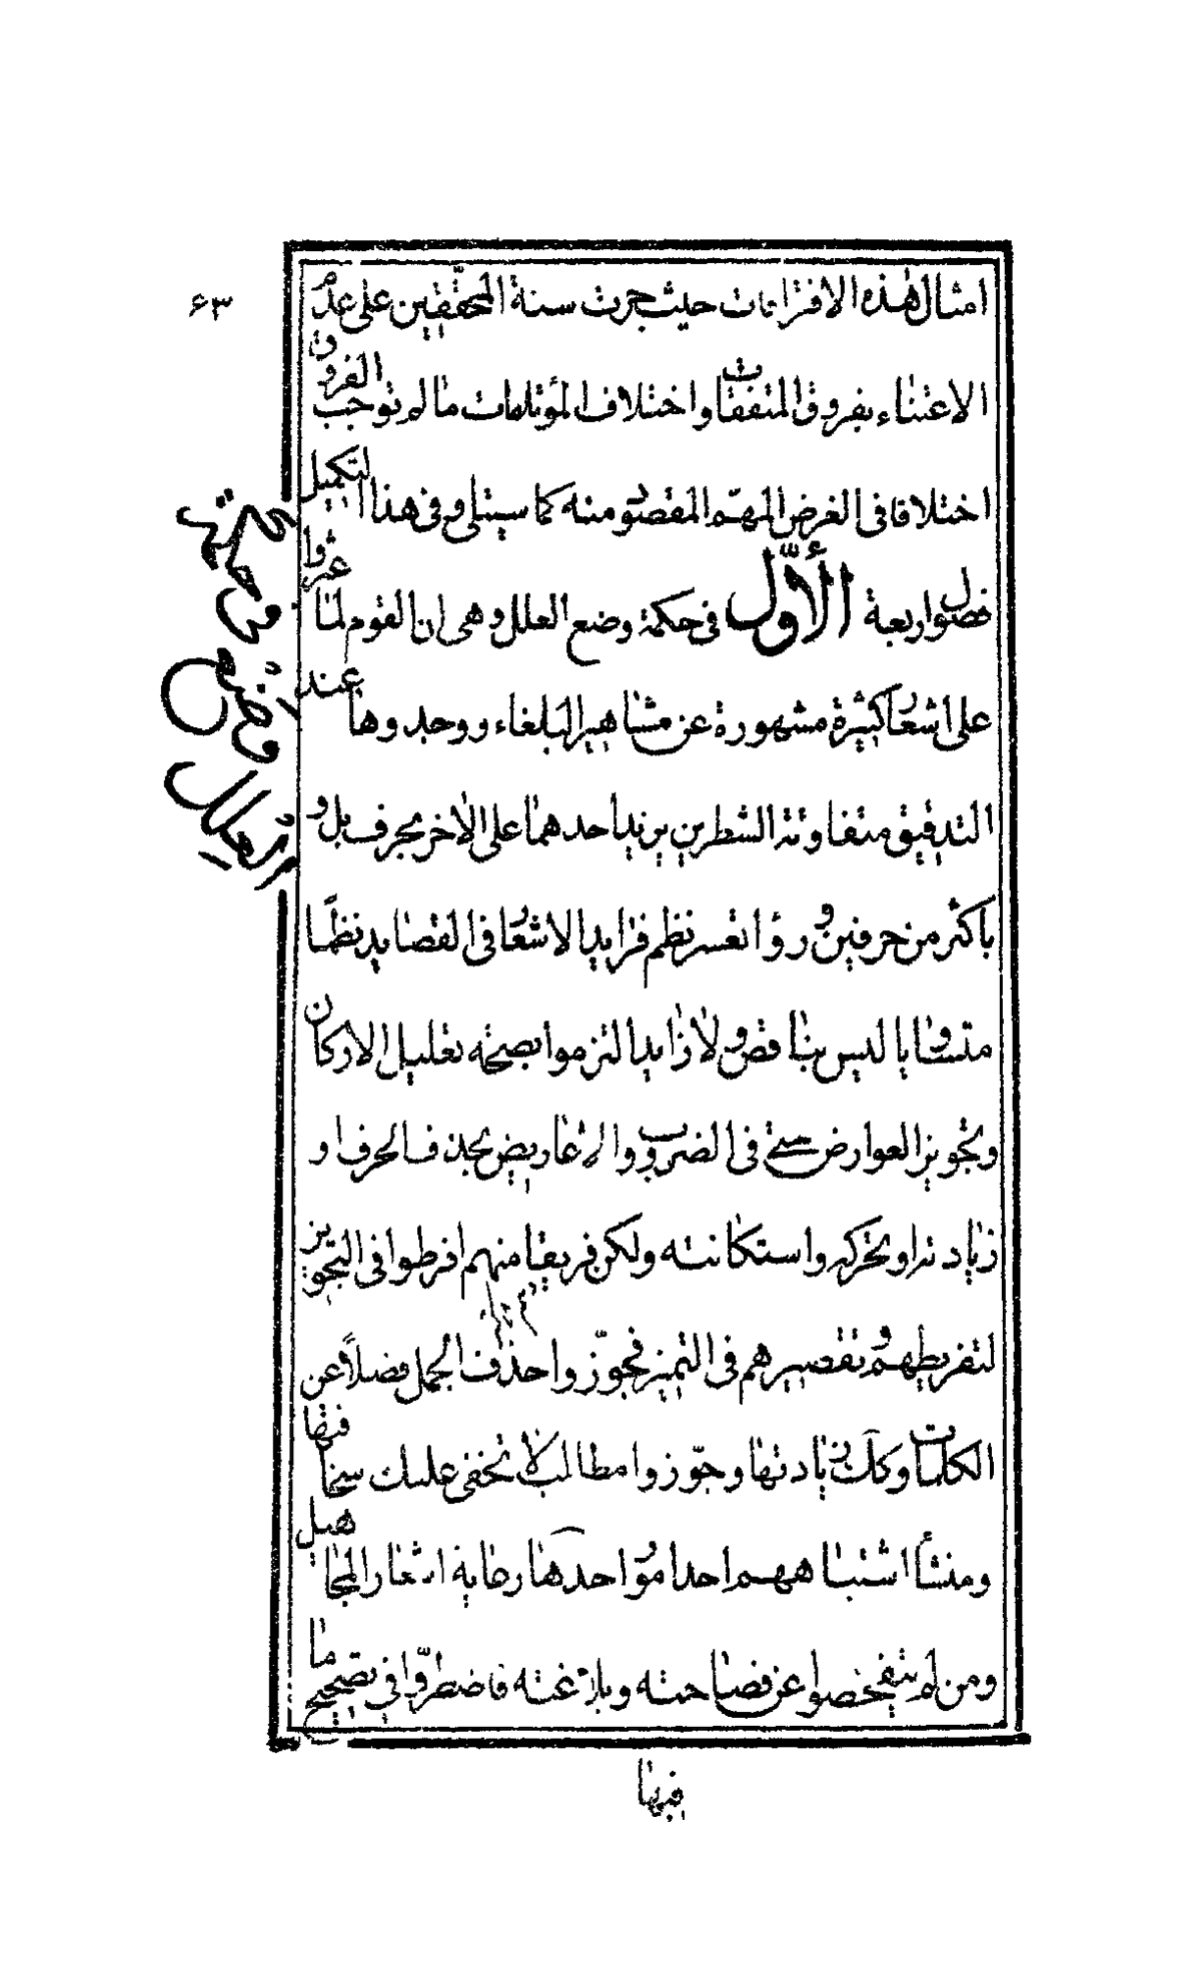 ۶۳
امثال هذه الافتراقات حيث جرت سنة المحققين على عدم
الاعتناء بفروق المتفقات واختلاف المؤتلفات ما لم توجب الفروق
اختلافا فى الغرض المهم المقصود منه كما سيتلى وفى هذا التكميل
فصول اربعة الأول فى حكمة وضع العلل وهى ان القوم لما عثروا
على اشعار كثيرة مشهورة عن مشاهير البلغاء ووجدوها عند
التدقيق متفاوتة الشطرين يزيد احدهما على الاخر بحرف بل و
باكثر من حرفين ورؤا تعسر نظم فرايد الاشعار فى القصايد نظما
متساويا ليس بناقص ولا زايد التزموا بصحة تعليل الاركان
وتجويز العوارض حتى فى الضروب والاعاريض بحذف الحرف او
زيادته او تحركه واستكانته ولكن فريقا منهم افرطوا فى التجويز
لتفريطهم وتقصيرهم فى التميز فجوزوا حذف الجمل فضلا عن
الكلمات وكذلك زيادتها وجوزوا مطالب لا تخفى عليك سخافتها
ومنشأ اشتباههم احد امور احدها رعاية اشعار المجاهيل
ومن لم يتفحصوا عن فصاحته وبلاغته فاضطروا فى تصحيح ما
فيها
حكمة
وضع
العلل